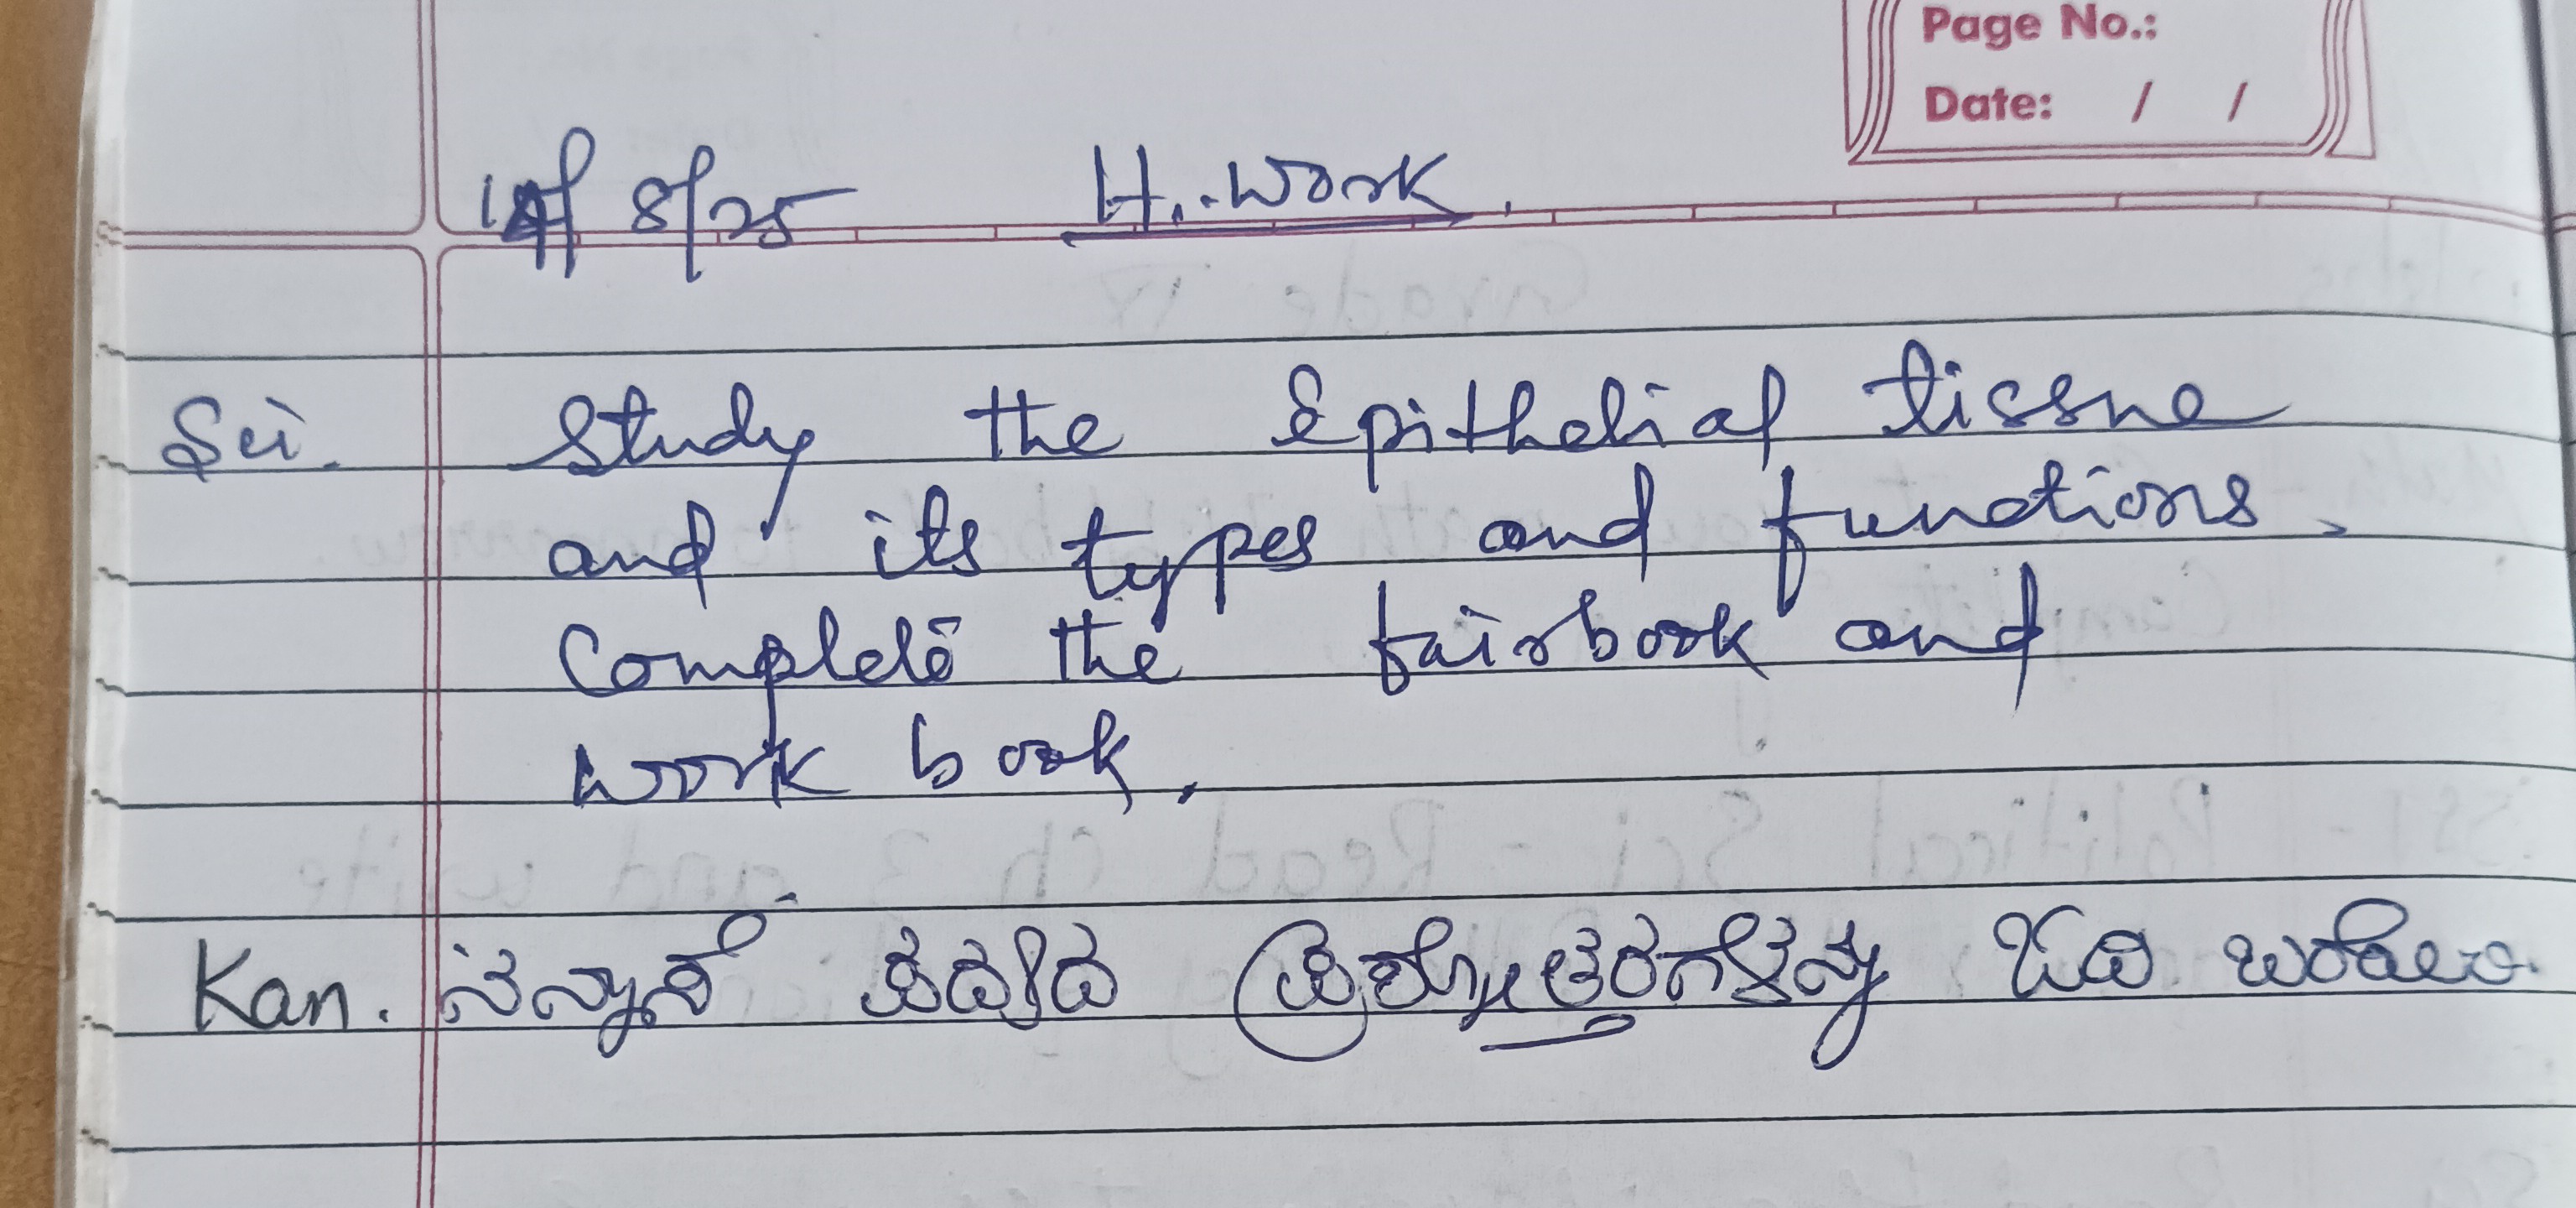 Page No.:
Date: / /
14/8/25 H.Work.
Sci. Study the Epithelial tissue
and its types and functions.
Complete the fairbook and
work book.
Kan. ಪದ್ಯದ ಪ್ರಶ್ನೋತ್ತರಗಳನ್ನು ಓದಿ ಬರೆಯಿರಿ.